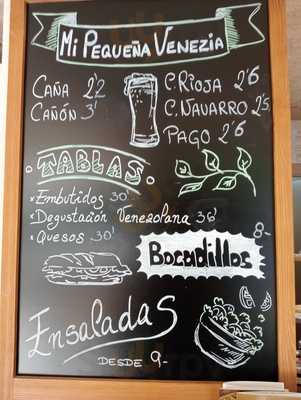 Mi Pequeña Venezia
Caña 2'2
Cañón 3'
C. Rioja 2'6
C. Navarro 2'5
Pago 2'6
Tablas
*Embutidos 30'
*Degustación Venezolana 36'
*Quesos 30'
8-
Bocadillos
Ensaladas
desde 9-